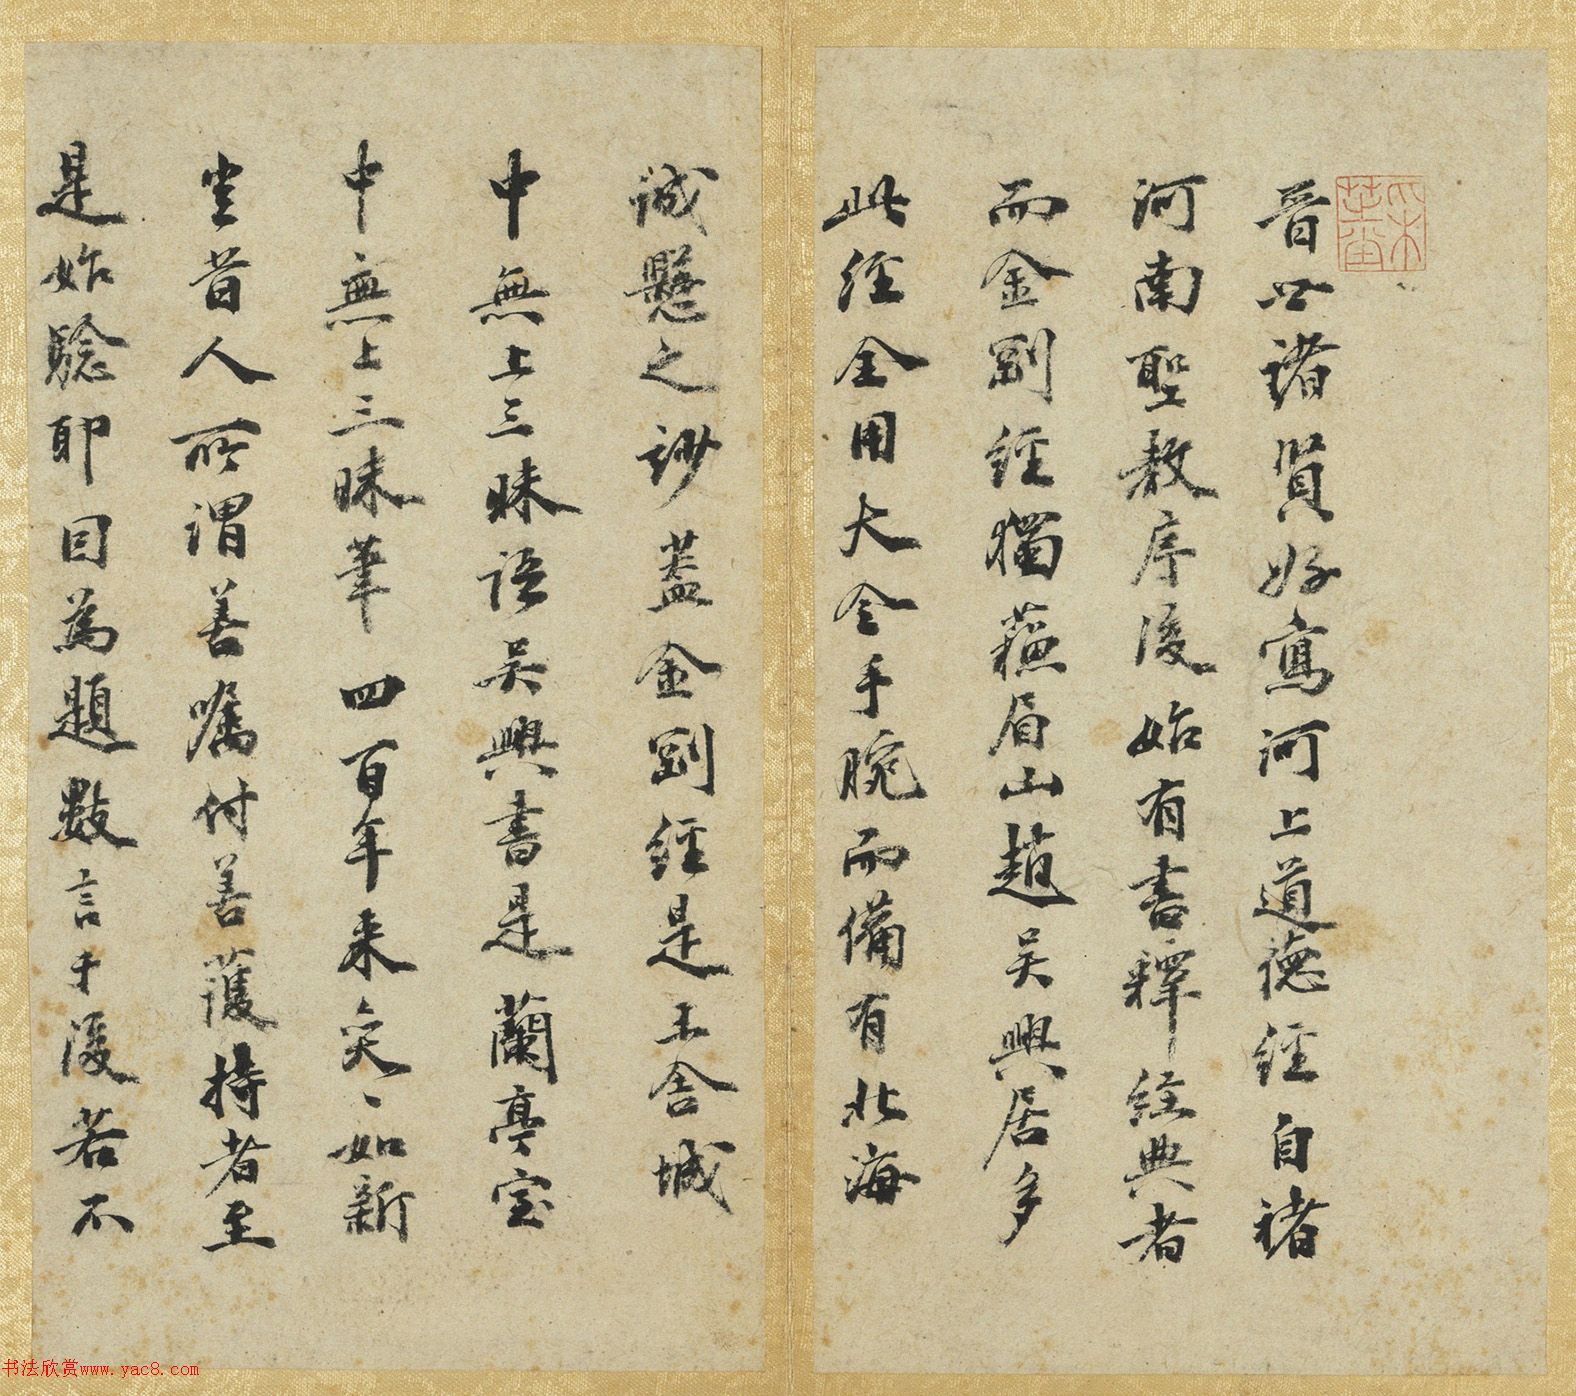 晉世諸賢好寫河上道德經自褚
河南聖教序後始有書釋經典者
而金剛經獨蘓眉山趙吳興居多
此經全用大令手腕而備有北海
誠懸之妙蓋金剛經是王舍城
中無上三昧語吳興書是蘭亭室
中無上三昧筆四百年来奕〻如新
豈昔人所謂善囑付善護持者至
是始驗耶因為題數言于後若不
书法欣赏www.yac8.com